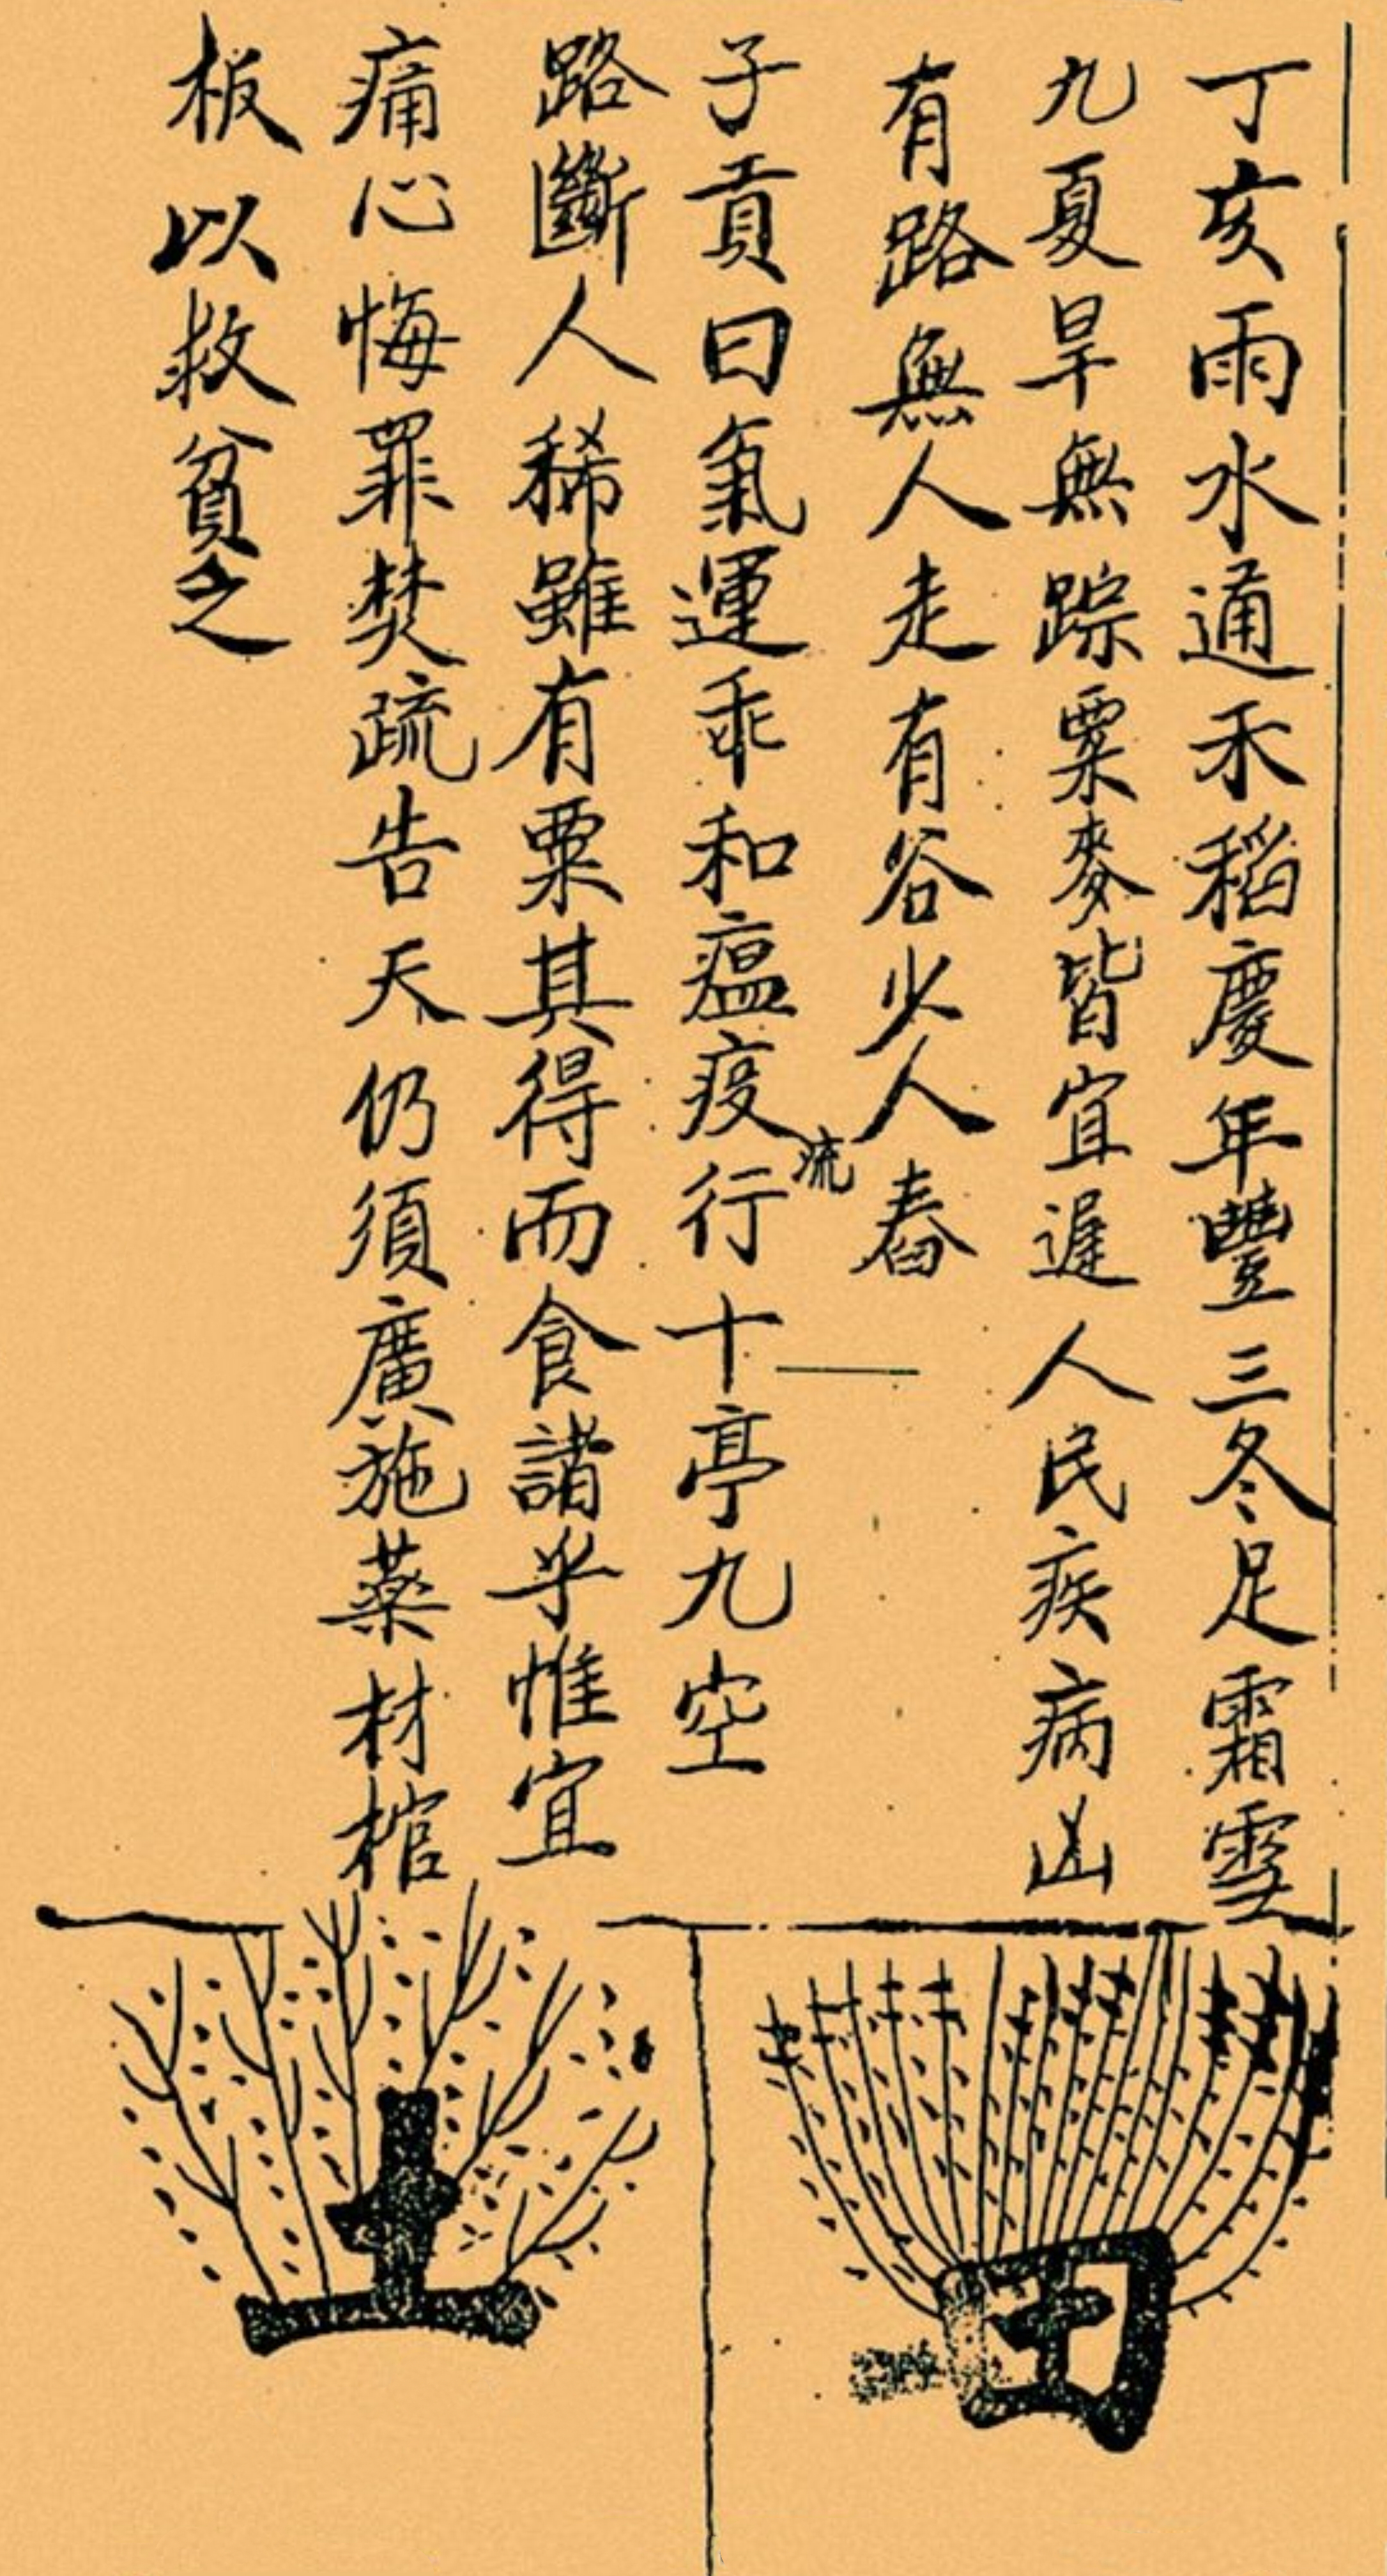 丁亥雨水通禾稻慶年豐三冬足霜雪
九夏旱無踪粟麥皆宜遲人民疾病凶
有路無人走有谷少人舂
子貢曰氣運乖和瘟疫流行十亭九空
路斷人稀雖有粟其得而食諸乎惟宜
痛心悔罪焚疏告天仍須廣施藥材棺
板以救貧乏